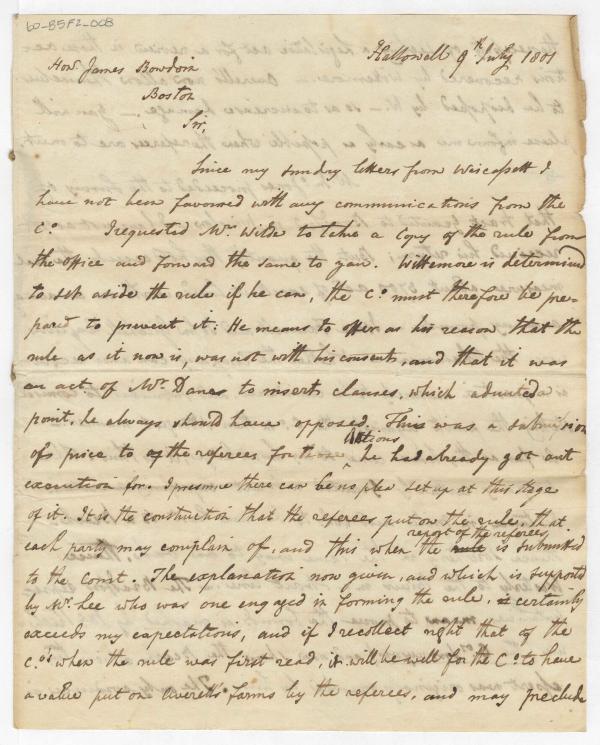 60-B5F2-008
Hallowell 9th July 1801
Honl. James Bowdoin
Boston
Sir,
Since my sundry letters from Wiscassett I
have not been favoured with any communications from the
Co. I requested Mr. Wilde to take a copy of the rule from
the office and forward the same to you. Wittemore is determined
to set aside the rule if he can, the Co. must therefore be pre-
pared to prevent it: He means to offer as his reason that the
rule as it now is, was not with his consents, and that it was
an act of Mr. Danes to insert clauses, which admited a
point, he always should have opposed. This was a submision
of price to the referees for those Actions he had already got out
execution for. I presume there can be no plea set up at this stage
of it. It is the construction that the referees put on the rule, that
each party may complain of, and this when the report of the referees is submitted
to the Court. The explanation now given, and which is supported
by Mr. Lee who was one engaged in forming the rule, certainly
exceeds my expectations, and if I recollect right that of the
Co.s when the rule was first read, it will be well for the Co. to have
a value put on Averett's farms by the referees, and may preclude